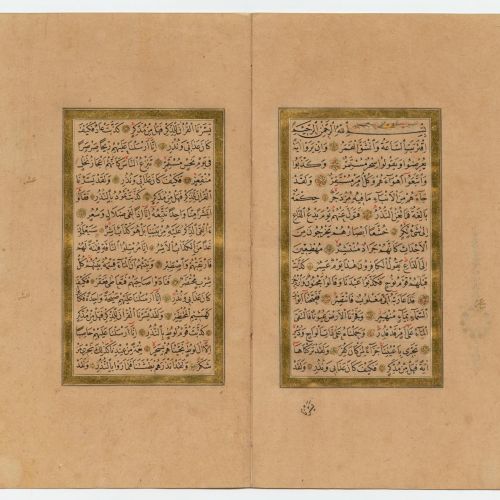 بسم الله الرحمن الرحيم
اقتربت الساعة وانشق القمر وان يروا اية
يعرضوا ويقولوا سحر مستمر وكذبوا
واتبعوا اهواءهم وكل امر مستقر ولقد
جاءهم من الانباء ما فيه مزدجر حكمة
بالغة فما تغن النذر فتول عنهم يوم يدع الداع
الى شيء نكر خشعا ابصارهم يخرجون من
الاجداث كانهم جراد منتشر مهطعين
الى الداع يقول الكافرون هذا يوم عسر كذبت
قبلهم قوم نوح فكذبوا عبدنا وقالوا مجنون وازدجر
فدعا ربه اني مغلوب فانتصر ففتحنا ابواب
السماء بماء منهمر وفجرنا الارض عيونا فالتقى
الماء على امر قد قدر وحملناه على ذات الواح ودسر
تجري باعيننا جزاء لمن كان كفر ولقد تركناها
اية فهل من مدكر فكيف كان عذابي ونذر ولقد
يسرنا
يسرنا القران للذكر فهل من مدكر كذبت عاد فكيف
كان عذابي ونذر انا ارسلنا عليهم ريحا صرصرا
في يوم نحس مستمر تنزع الناس كانهم اعجاز نخل
منقعر فكيف كان عذابي ونذر ولقد يسرنا
القران للذكر فهل من مدكر كذبت ثمود بالنذر فقالوا
ابشرا منا واحدا نتبعه انا اذا لفي ضلال وسعر
االقي الذكر عليه من بيننا بل هو كذاب اشر سيعلمون
غدا من الكذاب الاشر انا مرسلوا الناقة فتنة لهم
فارتقبهم واصطبر ونبئهم ان الماء قسمة بينهم كل
شرب محتضر فنادوا صاحبهم فتعاطى فعقر فكيف
كان عذابي ونذر انا ارسلنا عليهم صيحة واحدة فكانوا
كهشيم المحتظر ولقد يسرنا القران للذكر فهل من مدكر
كذبت قوم لوط بالنذر انا ارسلنا عليهم حاصبا
الا ال لوط نجيناهم بسحر نعمة من عندنا كذلك نجزي من
شكر ولقد انذرهم بطشتنا فتماروا بالنذر ولقد